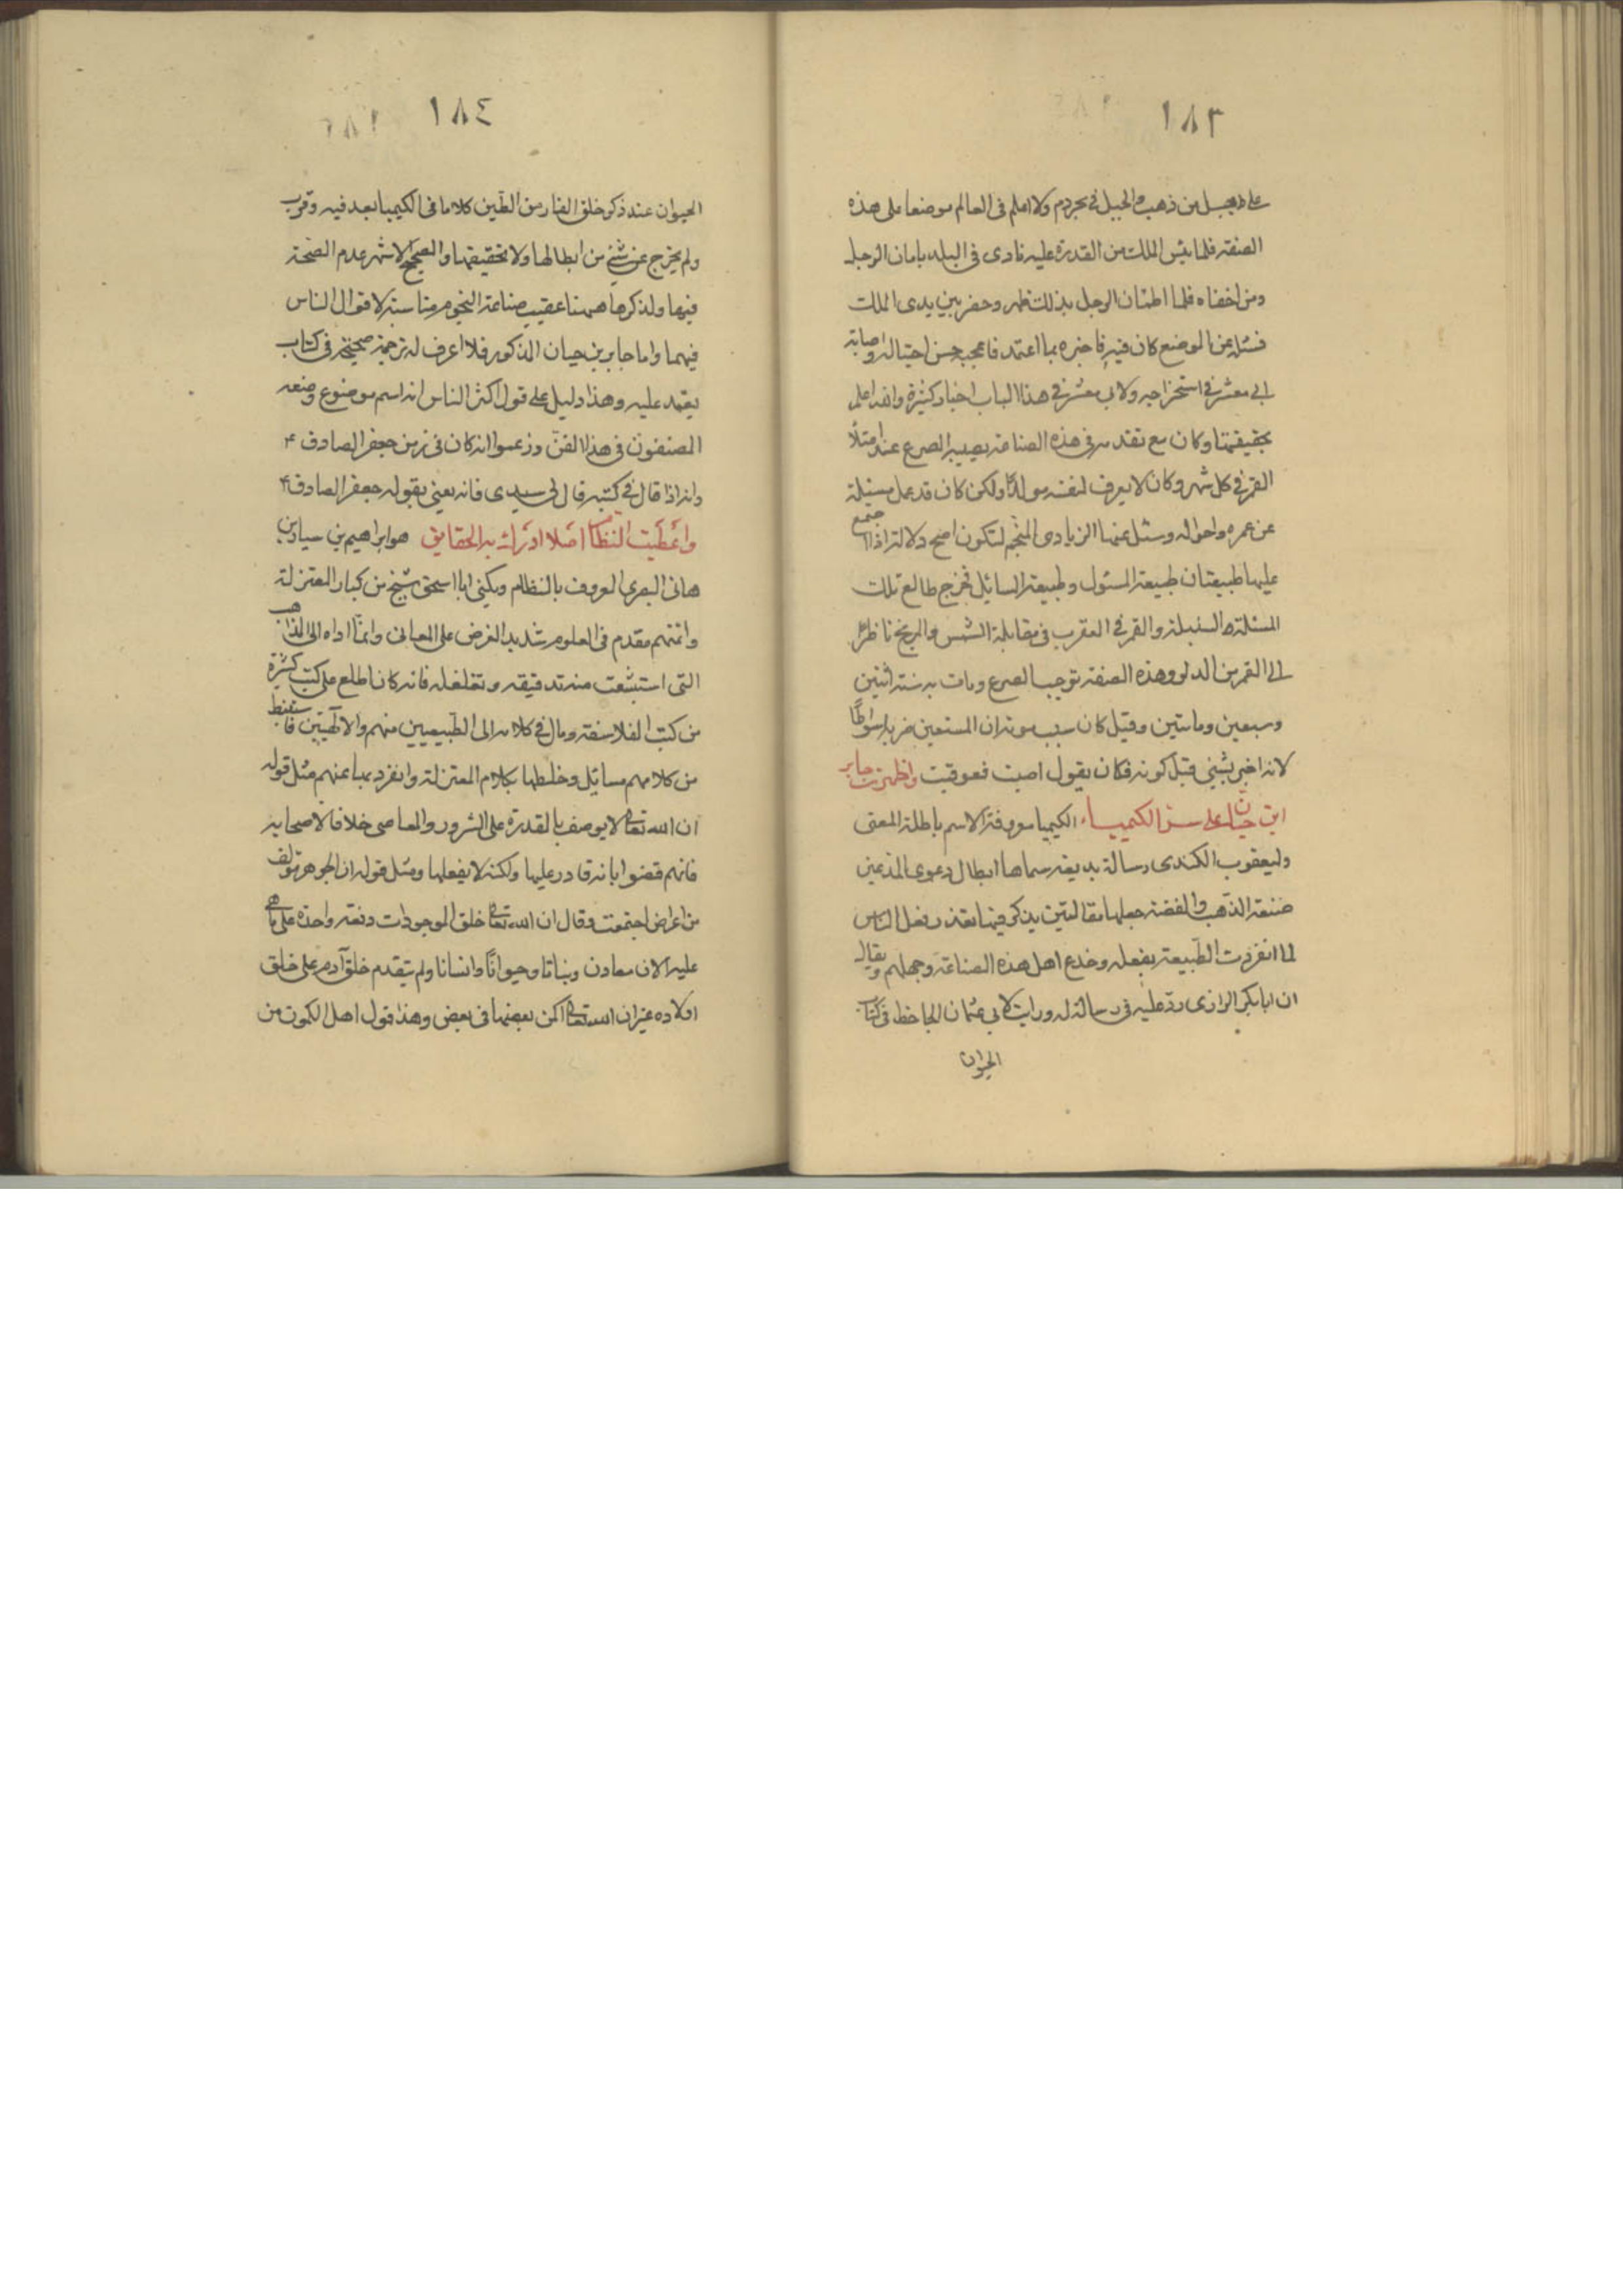 ١٨٣
على جبل من ذهب والجبل في بحر دم ولا اعلم في العالم موضعا على هذه
الصفة فلما يئس الملك من القدرة عليه نادى في البلد بامان الرجل
ومن اخفاه فلما اطمئن الرجل بذلك ظهر وحضر بين يدى الملك
فسئله عن الموضع كان فيه فاخبره بما اعتمد فاعجبه حسن احتياله واصابة
ابى معشر في استخراجه ولابى معشر في هذا الباب اخبار كثيرة والله اعلم
بحقيقتها وكان مع تقدمه في هذه الصناعة يصيبه الصرع عند امتلأ
القمر في كل شهر وكان لا يعرف لنفسه مولدا ولكن كان قد عمل مسئلة
عن عمره واحواله وسئل عنها الزيادى المنجم لتكون اصح دلالة اذا اجتمع
عليها طبيعتان طبيعة المسئول وطبيعة السائيل فخرج طالع تلك
المسئلة السنبلة والقمر في العقرب في مقابلة الشمس والمريخ ناظر
الى القمر من الدلو وهذه الصفة توجب الصرع ومات به سنة اثنتين
وسبعين وماتين وقيل كان سبب موته ان المستعين ضربه اسواطًا
لانه اخبر بشيئ قبل كونه فكان يقول اصبت فعوقبت واظهرت جابر
ابن حيان على سر الكيمياء الكيميا معروفة الاسم باطلة المعنى
وليعقوب الكندى رسالة بديعة سماها ابطال دعوى المدعين
صنعة الذهب والفضة جعلها مقالتين يذكر فيها تعذر فعل الناس
لما انفردت الطبيعة بفعله وخدع اهل هذه الصناعة وجهلهم ويقال
ان ابا بكر الرازى رد عليه في رسالة له ورايت لابى عثمان الجاحظ في كتاب
الحيوان
١٨٤
الحيوان عند ذكر خلق الفار من الطين كلاما في الكيميا بعد فيه وقرب
ولم يخرج عن شئ من ابطالها ولا تحقيقها والصحيح الاشهر عدم الصحة
فيها ولذكرها ههنا عقيب صناعة النجوم مناسبة لاقوال الناس
فيهما واما جابر بن حيان المذكور فلا اعرف له ترجمة صحيحة في كتاب
يعتمد عليه وهذا دليل على قول اكثر الناس انه اسم موضوع وضعه
المصنفون في هذا الفن وزعموا انه كان في زمن جعفر الصادق ٤
وانه اذا قال في كتبه قال لى سيدى فانه يعنى بقوله جعفر الصادق ٤
واعطيت النظام اصلا ادرك به الحقايق هو ابراهيم بن سيار بن
هانى البصرى المعروف بالنظام ويكنى ابا اسحق شيخ من كبار المعتزلة
وائمتهم مقدم في العلوم شديد الغرض على المعانى وانما اداه الى المذاهب
التى استبشعت منه تدقيقه وتغلغله فانه كان اطلع على كتب كثيرة
من كتب الفلاسفة ومال في كلامه الى الطبيعيين منهم والالهيين فاستنبط
من كلامهم مسائيل وخلطها بكلام المعتزلة وانفرد بها عنهم مثل قوله
ان الله تعالى لا يوصف بالقدرة على الشرور والمعاصى خلافا لاصحابه
فانهم قضوا بانه قادر عليها ولكنه لا يفعلها ومثل قوله ان الجوهر مؤلف
من اعراض اجتمعت وقال ان الله تعالى خلق الموجودات دفعة واحدة على ما هى
عليه الان معادن ونباتا وحيوانًا وانسانا ولم يتقدم خلق آدم على خلق
اولاده غير ان الله تعالى اكمن بعضها في بعض وهذا قول اهل الكمون من